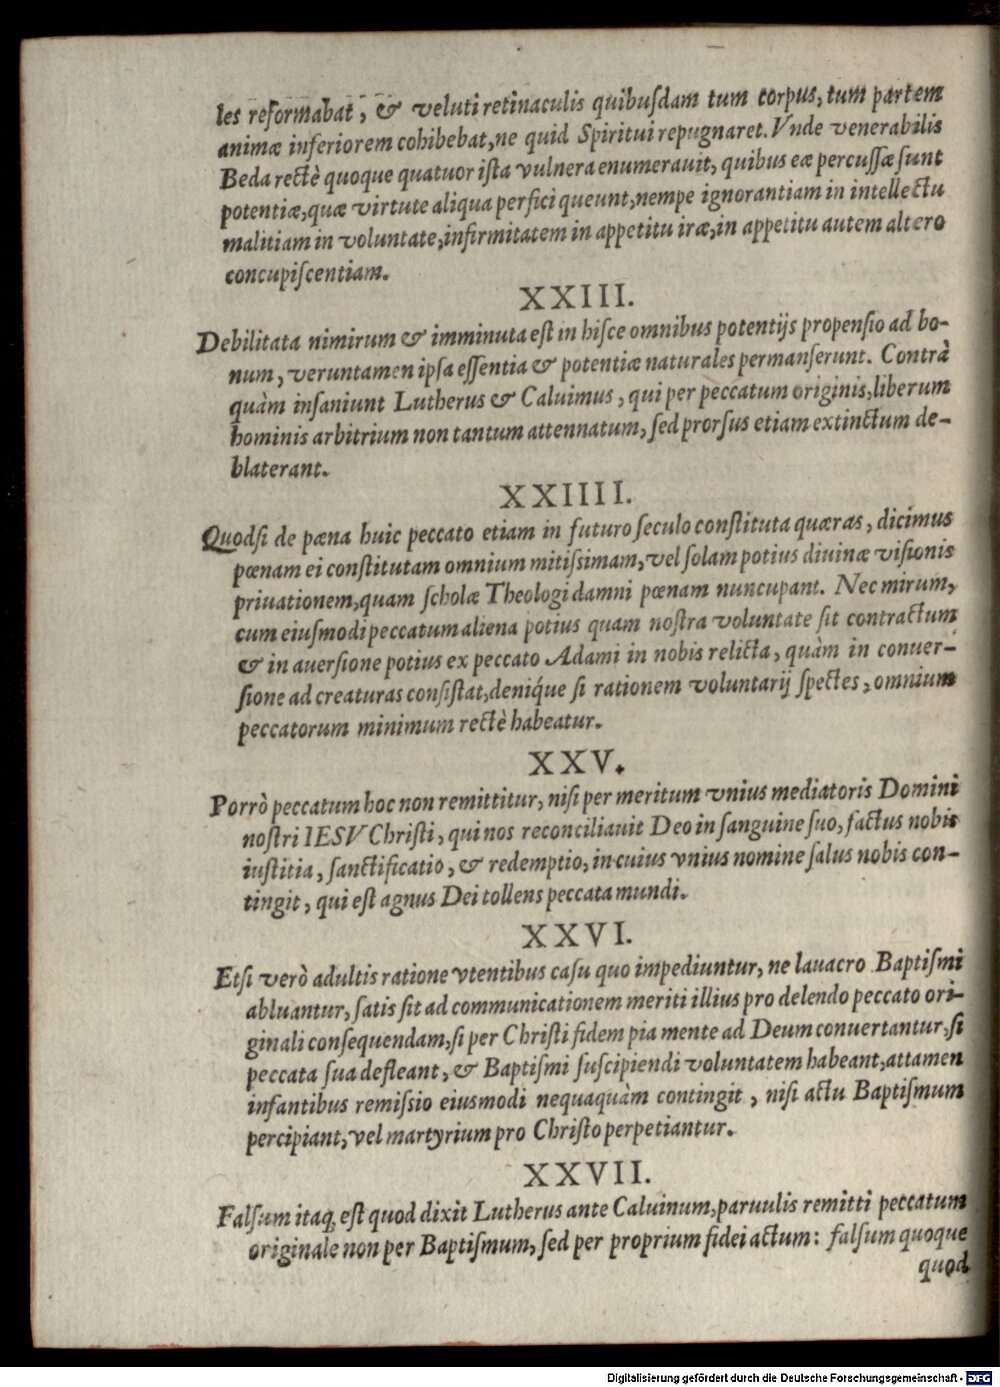 les reformabat, & veluti retinaculis quibuſdam tum corpus, tum partem
animæ inferiorem cohibebat, ne quid Spiritui repugnaret. Vnde venerabilis
Beda rectè quoque quatuor iſta vulnera enumerauit, quibus eæ percuſſæ ſunt
potentiæ, quæ virtute aliqua perfici queunt, nempe ignorantiam in intellectu
malitiam in voluntate, infirmitatem in appetitu iræ, in appetitu autem altero
concupiſcentiam.
XXIII.
Debilitata nimirum & imminuta eſt in hiſce omnibus potentijs propenſio ad bo-
num, veruntamen ipſa eſſentia & potentiæ naturales permanſerunt. Contrà
quàm inſaniunt Lutherus & Caluimus, qui per peccatum originis, liberum
hominis arbitrium non tantum attennatum, ſed prorſus etiam extinctum de-
blaterant.
XXIIII.
Quodſi de pæna huic peccato etiam in futuro ſeculo conſtituta quæras, dicimus
pœnam ei conſtitutam omnium mitiſsimam, vel ſolam potius diuinæ viſionis
priuationem, quam ſcholæ Theologi damni pœnam nuncupant. Nec mirum,
cum eiuſmodi peccatum aliena potius quam noſtra voluntate ſit contractum
& in auerſione potius ex peccato Adami in nobis relicta, quàm in conuer-
ſione ad creaturas conſiſtat, deniq́ue ſi rationem voluntarij ſpectes, omnium
peccatorum minimum rectè habeatur.
XXV.
Porrò peccatum hoc non remittitur, niſi per meritum vnius mediatoris Domini
noſtri IESV Chriſti, qui nos reconciliauit Deo in ſanguine ſuo, factus nobis
iuſtitia, ſanctificatio, & redemptio, in cuius vnius nomine ſalus nobis con-
tingit, qui eſt agnus Dei tollens peccata mundi.
XXVI.
Etſi verò adultis ratione vtentibus caſu quo impediuntur, ne lauacro Baptiſmi
abluantur, ſatis ſit ad communicationem meriti illius pro delendo peccato ori-
ginali conſequendam, ſi per Chriſti fidem pia mente ad Deum conuertantur, ſi
peccata ſua defleant, & Baptiſmi ſuſcipiendi voluntatem habeant, attamen
infantibus remiſsio eiusmodi nequaquàm contingit, niſi actu Baptiſmum
percipiant, vel martyrium pro Chriſto perpetiantur.
XXVII.
Falſum itaq; eſt quod dixit Lutherus ante Caluinum, paruulis remitti peccatum
originale non per Baptiſmum, ſed per proprium fidei actum: falſum quoque
quod
Digitalisierung gefördert durch die Deutsche Forschungsgemeinschaft - DFG